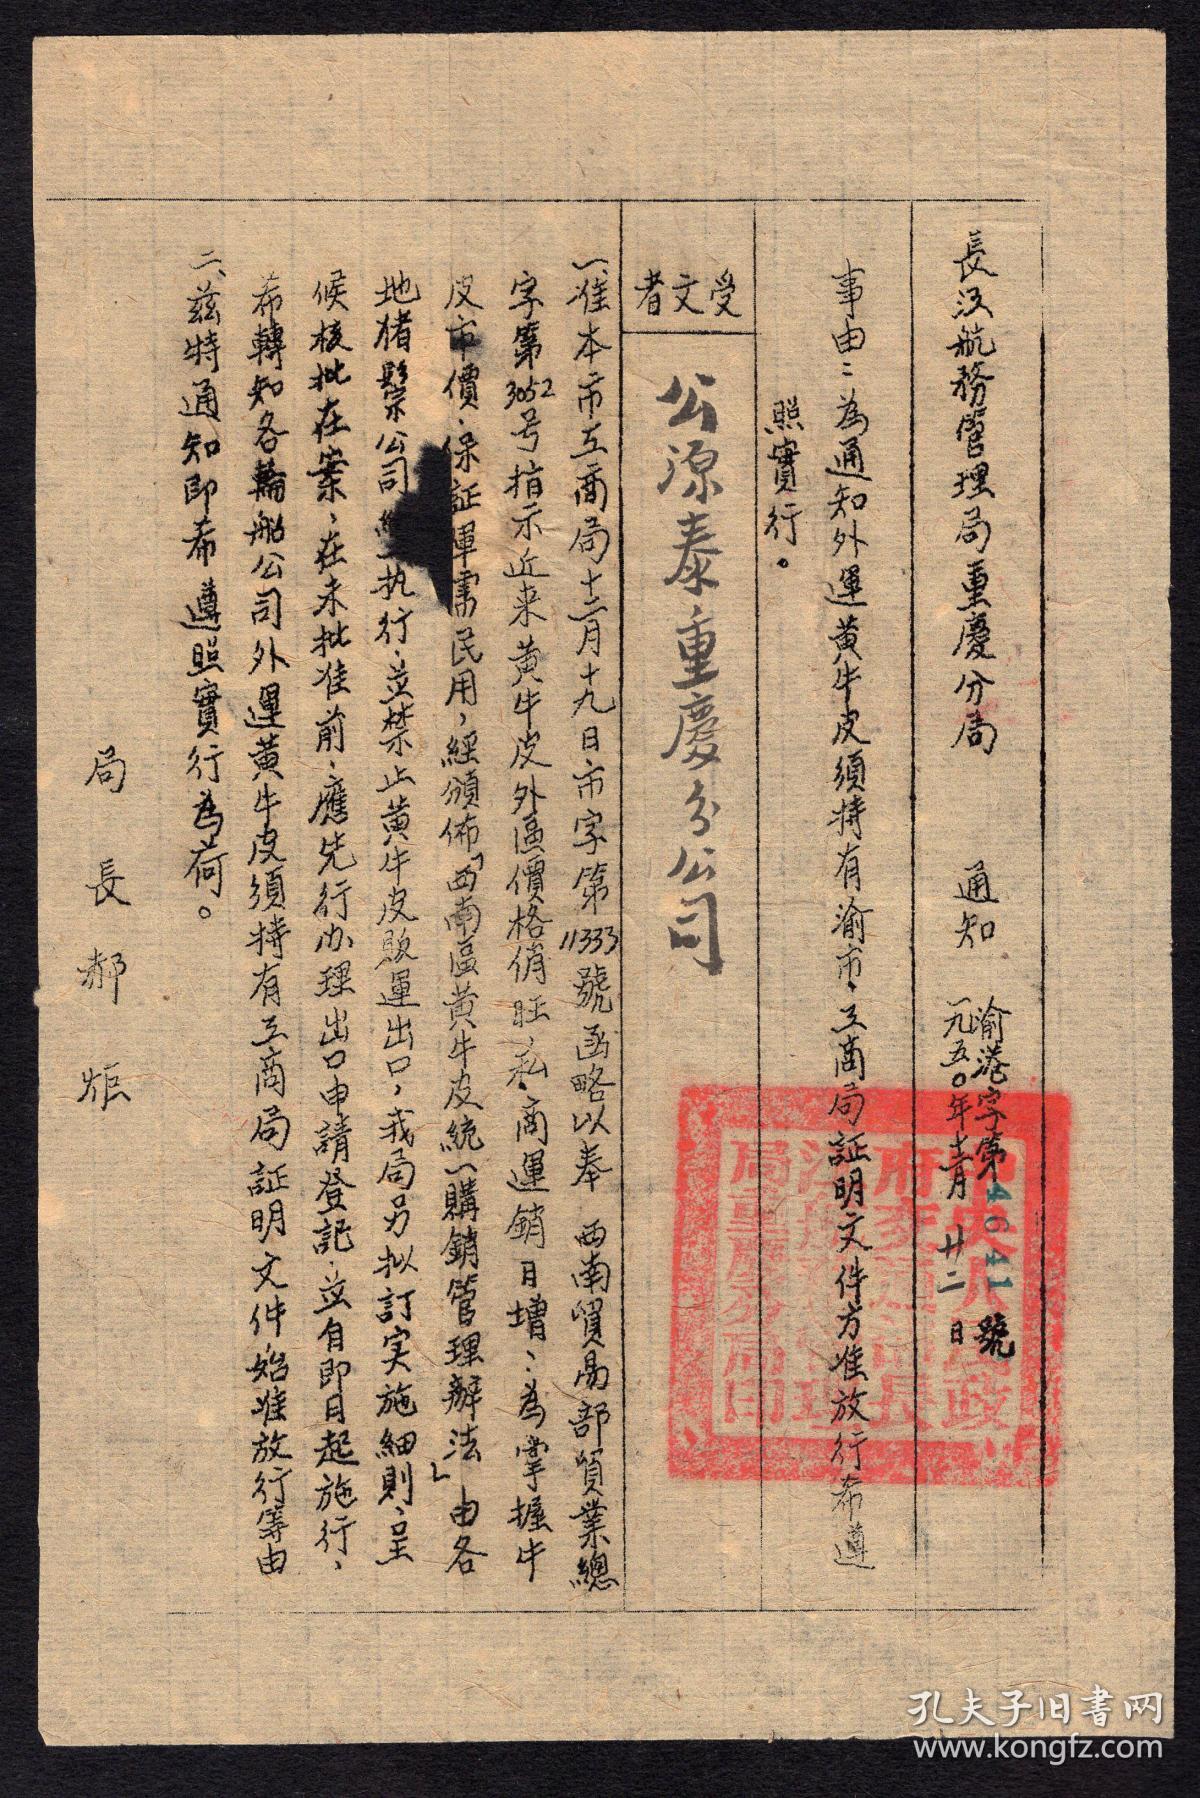 長江航務管理局重慶分局　通知
渝港字第4641號
一九五〇年十二月廿二日
事由：為通知外運黃牛皮須持有渝市工商局証明文件方准放行希遵
照實行。
受文者
公源泰重慶分公司
一、准本市工商局十二月十九日市字第11333號函略以奉　西南貿易部貿業總
字第3052号指示近来黃牛皮外區價格俏旺、私商運銷日增、為掌握牛
皮市價、保証軍需民用，經頒佈「西南區黃牛皮統一購銷管理辦法」由各
地猪鬃公司執行、並禁止黃牛皮販運出口，我局另拟訂实施細則、呈
候核批在案、在未批准前、應先行办理出口申請登記、並自即日起施行、
希轉知各輪船公司外運黃牛皮須持有工商局証明文件，始准放行等由
二、茲特通知即希遵照實行為荷。
局長郝炬
孔夫子旧书网
www.kongfz.com